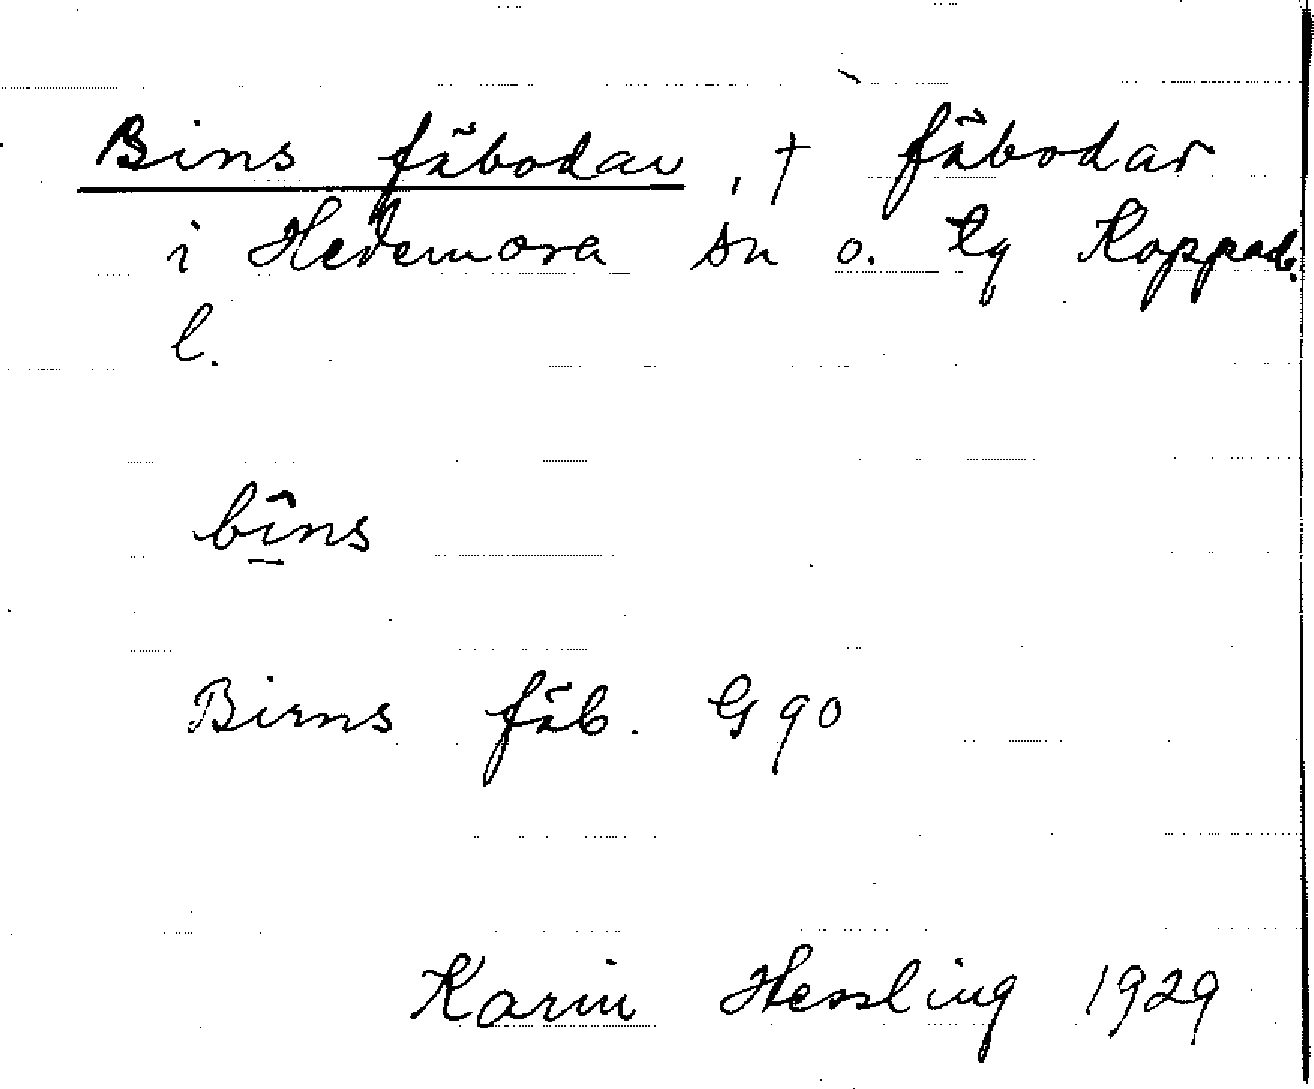 Bins fäbodar, † fäbodar
i Hedemora sn o. tg Kopparb.
l.
bîns
Birns fäb. G 90
Karin Hessling 1929